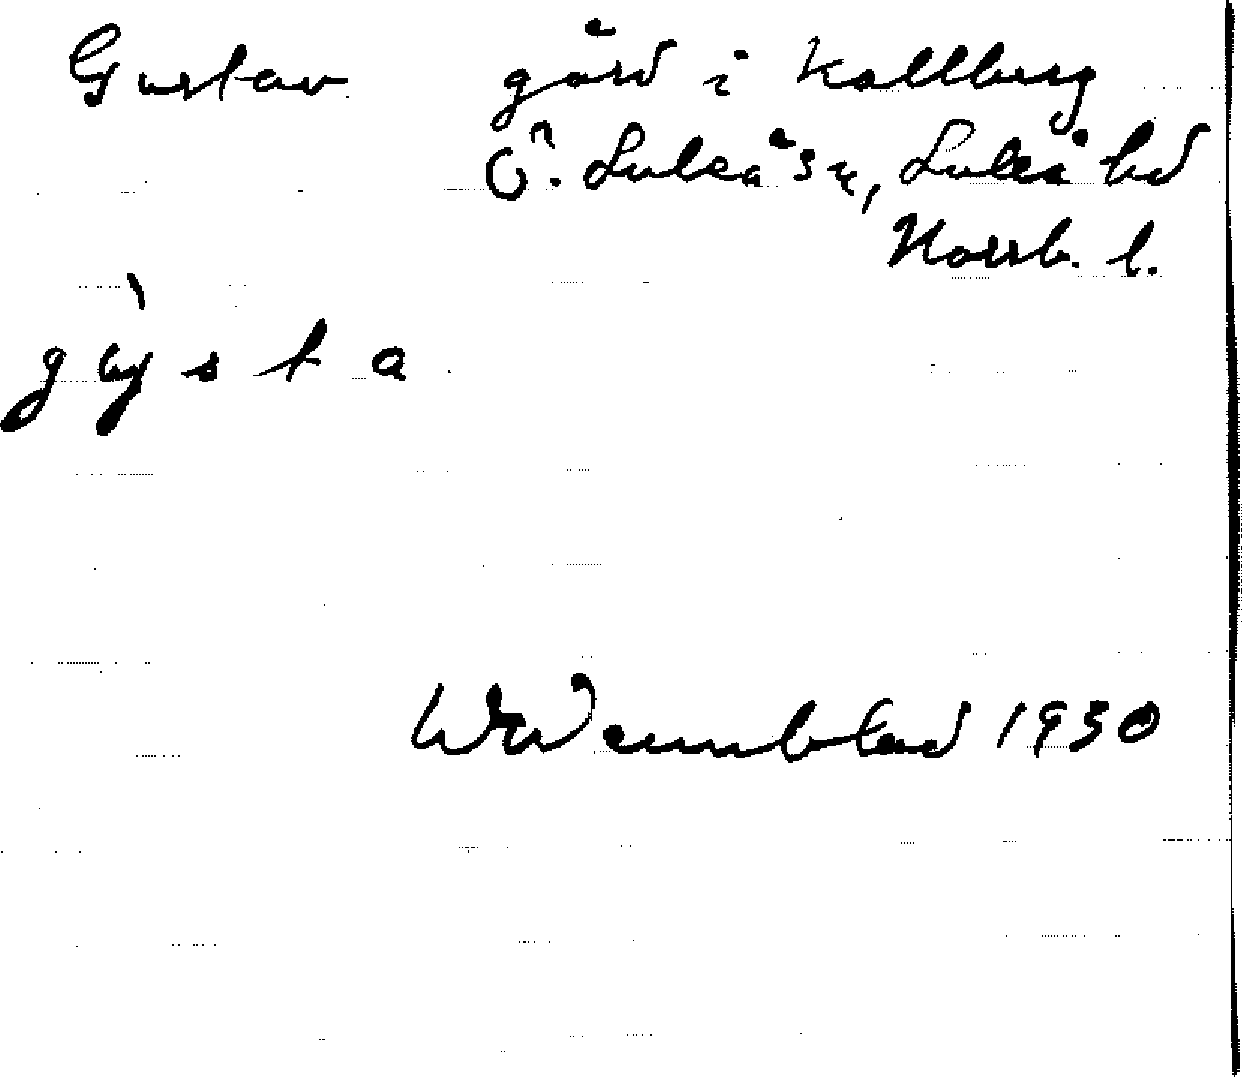 Gustav gård i Kallberg
Ö. Luleå sn, Luleå hd
Norrb. l.
gỳsta
W Wennblad 1930